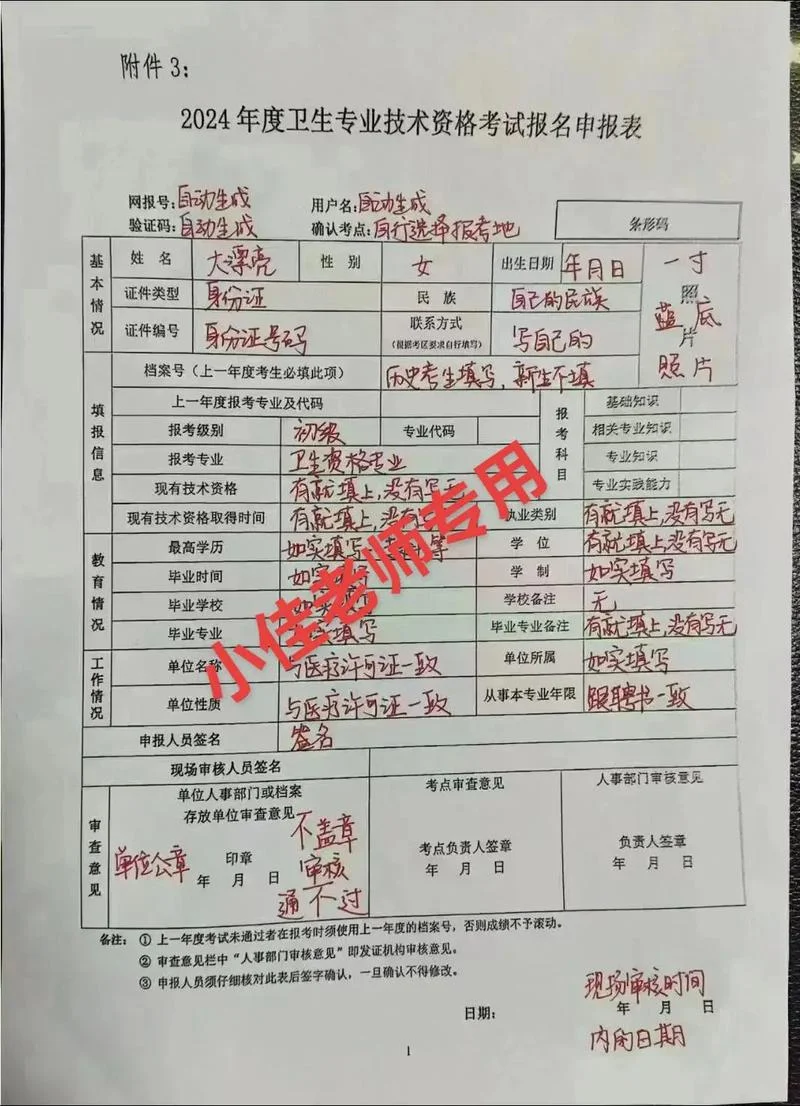 附件3:
2024年度卫生专业技术资格考试报名申报表
网报号:自动生成 用户名:自动生成
验证码:自动生成 确认考点:自行选择报考地 条形码
基本情况 姓名 大漂亮 性别 女 出生日期 年月日 一寸
证件类型 身份证 民族 自己的民族 照
蓝底
片
证件编号 身份证号码 联系方式 写自己的
(根据考区要求自行填写)
照片
填报信息 档案号(上一年度考生必填此项) 历史考生填写,新生不填
上一年度报考专业及代码 报考科目 基础知识
报考级别 初级 专业代码 相关专业知识
报考专业 卫生资格专业 专业知识
现有技术资格 有就填上,没有写无 专业实践能力
现有技术资格取得时间 有就填上,没有 执业类别 有就填上,没有写无
教育情况 最高学历 如实填写 等 学位 有就填上,没有写无
毕业时间 如实 学制 如实填写
毕业学校 如实 学校备注 无
毕业专业 填写 毕业专业备注 有就填上,没有写无
工作情况 单位名称 与医疗许可证一致 单位所属 如实填写
单位性质 与医疗许可证一致 从事本专业年限 跟聘书一致
申报人员签名 签名
现场审核人员签名
审查意见 单位人事部门或档案 考点审查意见 人事部门审核意见
存放单位审查意见
不盖章
单位公章 印章 审核 考点负责人签章 负责人签章
年 月 日 年 月 日 年 月 日
通不过
小佳老师专用
备注: ① 上一年度考试未通过者在报考时须使用上一年度的档案号,否则成绩不予滚动。
② 审查意见栏中“人事部门审核意见”即发证机构审核意见。
③ 申报人员须仔细核对此表后签字确认,一旦确认不得修改。
现场审核时间
日期: 年 月 日
内的日期
1